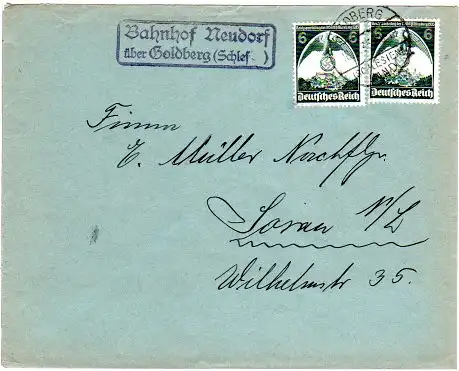 Bahnhof Neudorf
über Goldberg (Schles.)
GOLDBERG
6 6
6 6
Deutsches Reich
Deutsches Reich
Firma
E. Müller Nachflgr.
Sorau N/L
Wilhelmstr 35.